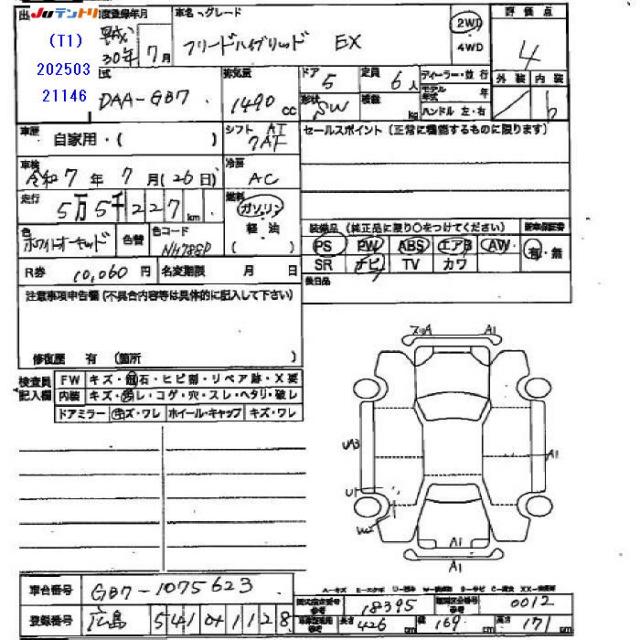 出 JUテントリ 度登録年月 車名・グレード 2WD 評価点
(T1) 平成 30年 7月 フリードハイブリッド EX 4WD 4
202503
21146
外装 内装
型式 排気量 ドア 定員 ディーラー・並行
DAA-GB7 1490 CC 5 6人
形状 SW 積載 kg モデル年式 年
ハンドル 左・右
b
車歴 自家用・( ) シフト AT 7AF セールスポイント(正常に機能するものに限ります)
車検 令和7年 7月(26日) 冷房 AC
走行 5万5千227km 燃料 ガソリン 軽油 ( )
装備品(純正品に限り○をつけてください) 新車保証書
色 ホワイトオーキッド 色替 色コード NH788P
PS PW ABS エアB AW 有・無
SR ナビ TV カワ
R券 10,060円 名変期限 月 日 後日品
注意事項申告欄(不具合内容等は具体的に記入して下さい)
修復歴 有(箇所 )
検査員記入欄 FW キズ・飛石・ヒビ割・リペア跡・X要
内装 キズ・汚レ・コゲ・穴・スレ・ヘタリ・破レ
ドアミラー キズ・ワレ ホイール・キャップ キズ・ワレ
A1
UA3 A1
U1
W2
A1
A1
車台番号 GB7-1075623
18395 0012
登録番号 広島 541 の 1128
長さ 426 cm 幅 169 cm 高さ 171 cm